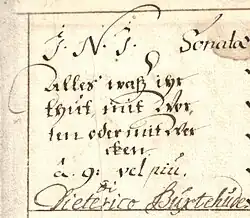 J. N. J. Sonata
Alles waß ihr
thut mit Wor
ten oder mit Wer
cken.
à. 9. vel più.
di
Dieterico Buxtehude